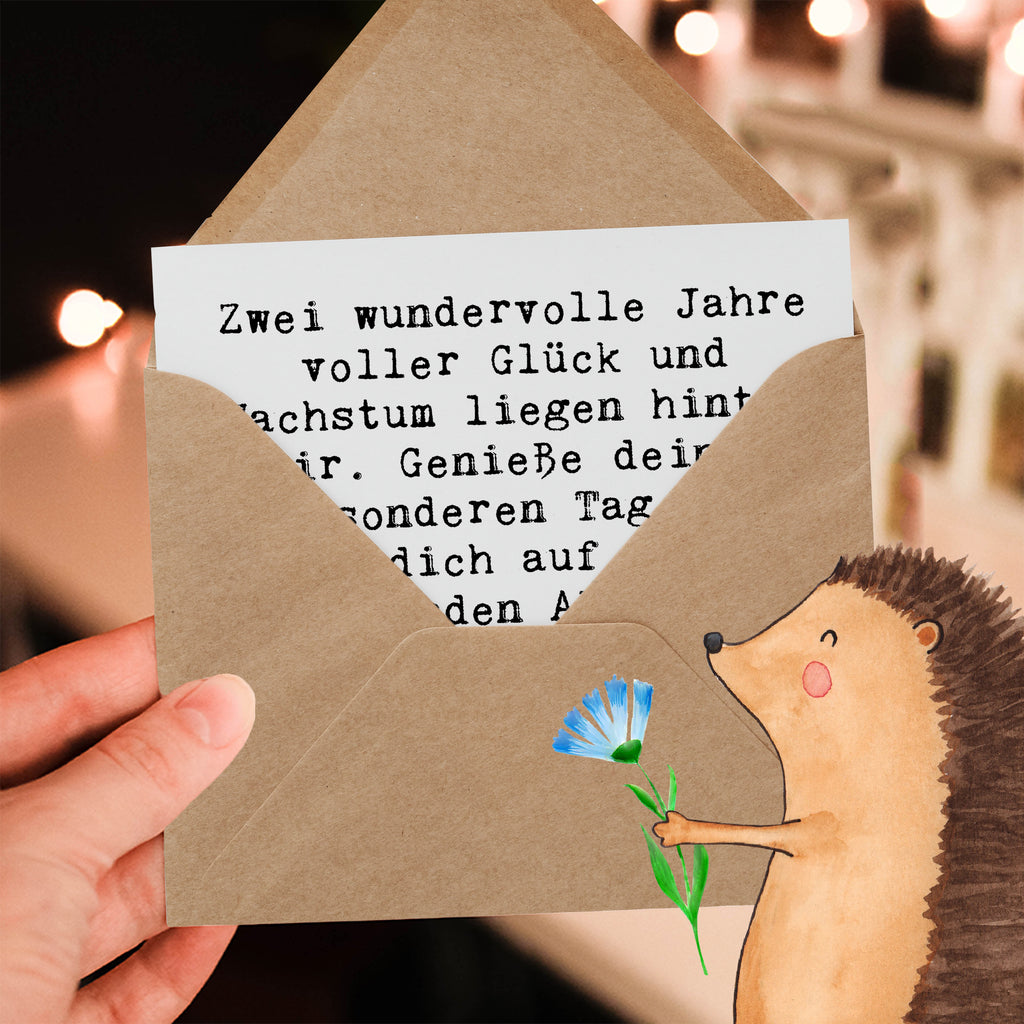 Zwei wundervolle Jahre
voller Glück und
achstum liegen hint
ir. Genieße dein
sonderen Tag
dich auf
den A